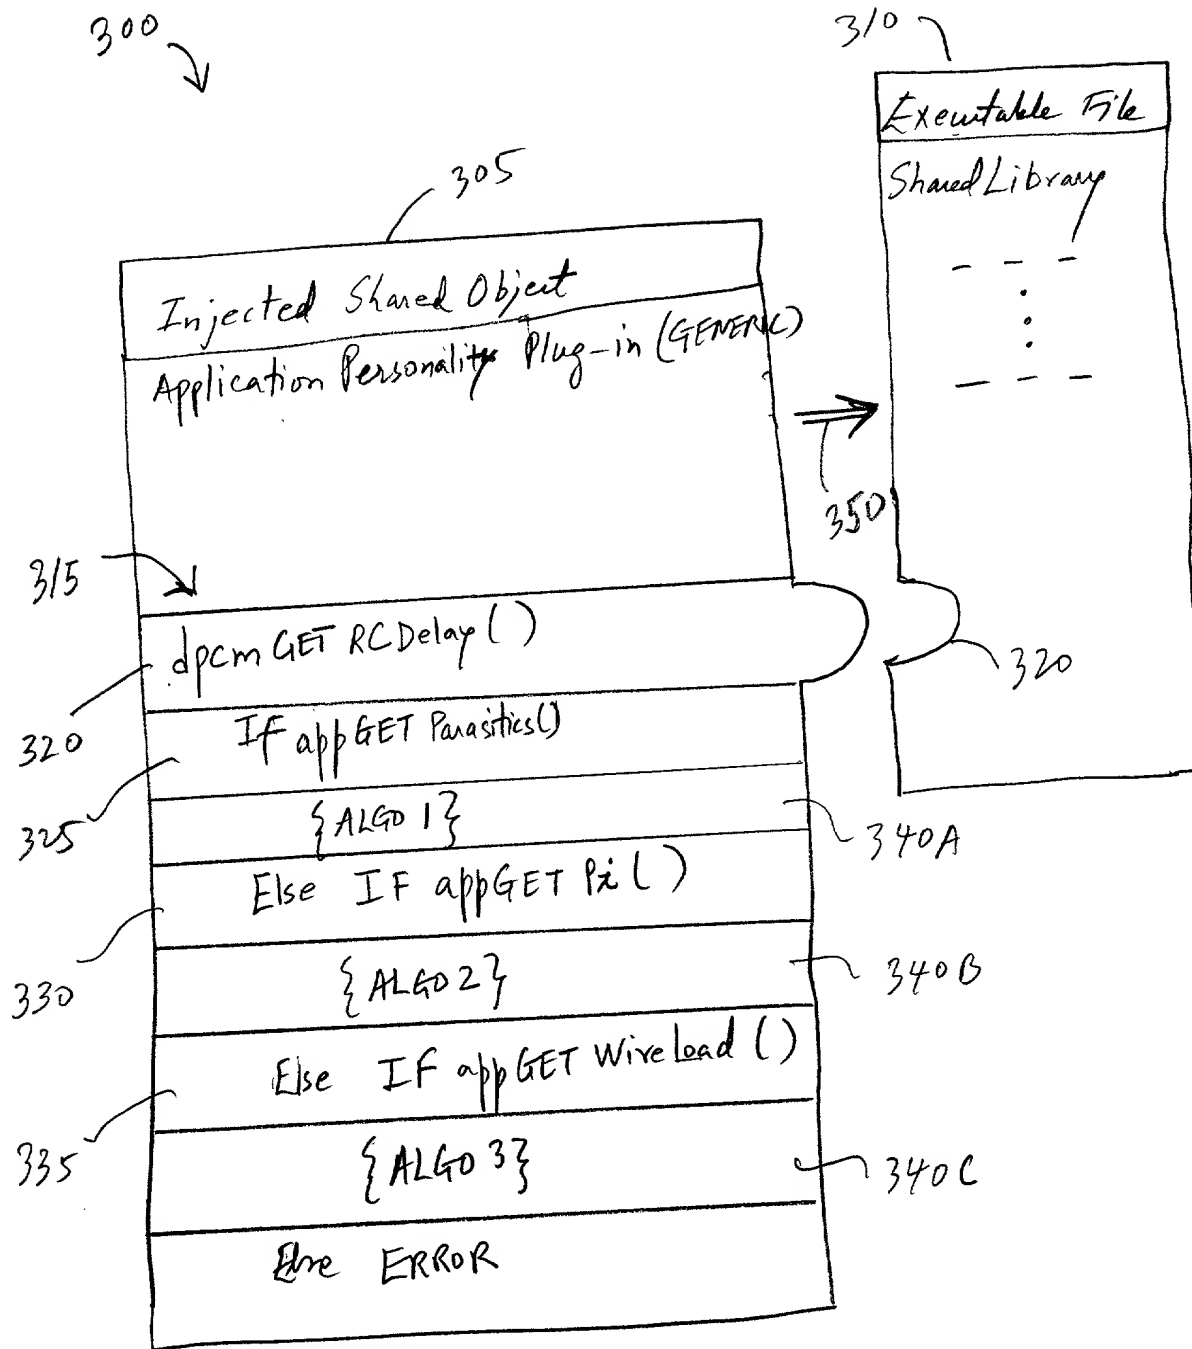 300
310
Executable File
Shared Library
305
Injected Shared Object
Application Personality Plug-in (GENERIC)
350
315
dpcm GET RCDelay ( )
320
320
If appGET Parasitics()
325
{ALGO 1}
340A
Else IF appGET Pi ( )
330
{ALGO 2}
340B
Else IF appGET Wireload ( )
335
{ALGO 3}
340C
Else ERROR